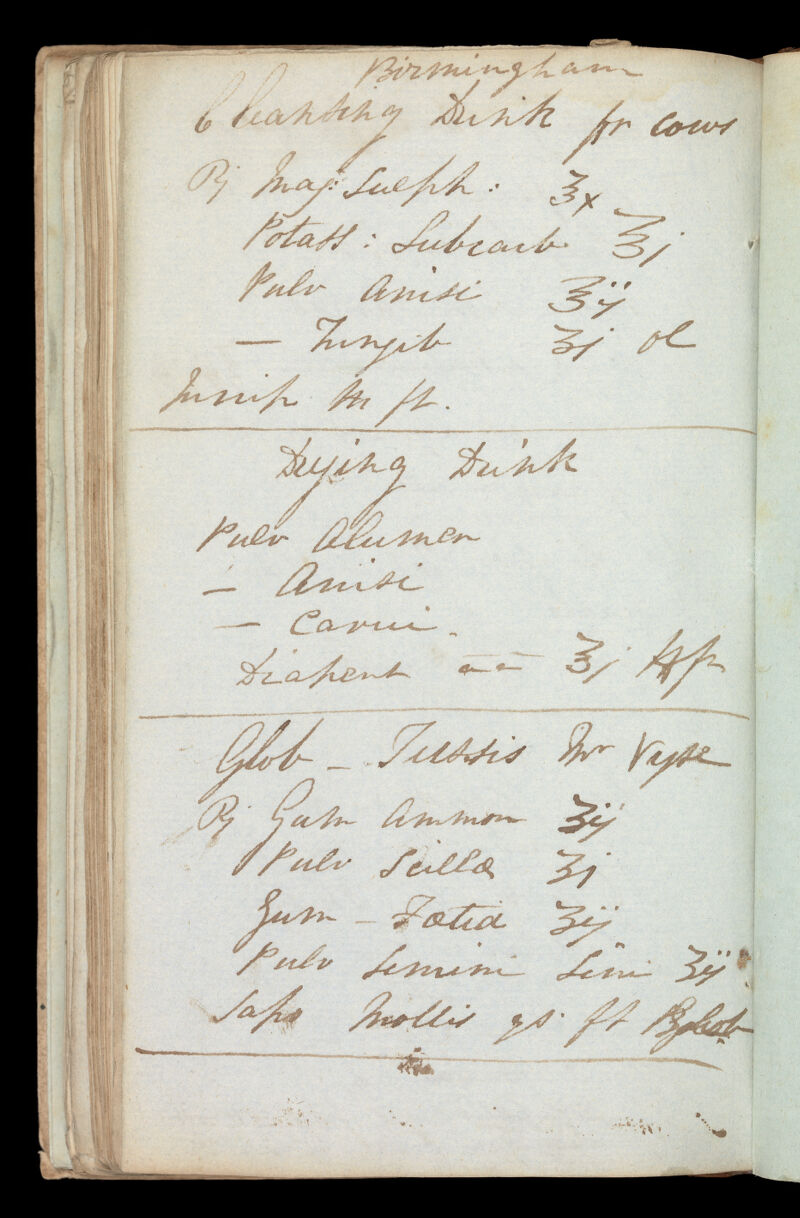 Birmingham
Cleansing Drink for cows
℞ Mag: Sulph: ℥x
Potass: Subcarb ℥j
Pulv Anisi ʒij
— Zingib ʒj ol
Junip m ft.
Drying Drink
Pulv Alumen
— Anisi
— Carui
Diapent aa ℥j
Glob – Tussis Mr Vyse
℞ Gum Ammon ʒij
Pulv Scillæ ʒj
Gum – Fœtid ʒij
Pulv Semini Lini ʒij
Sapo Mollis qs. ft